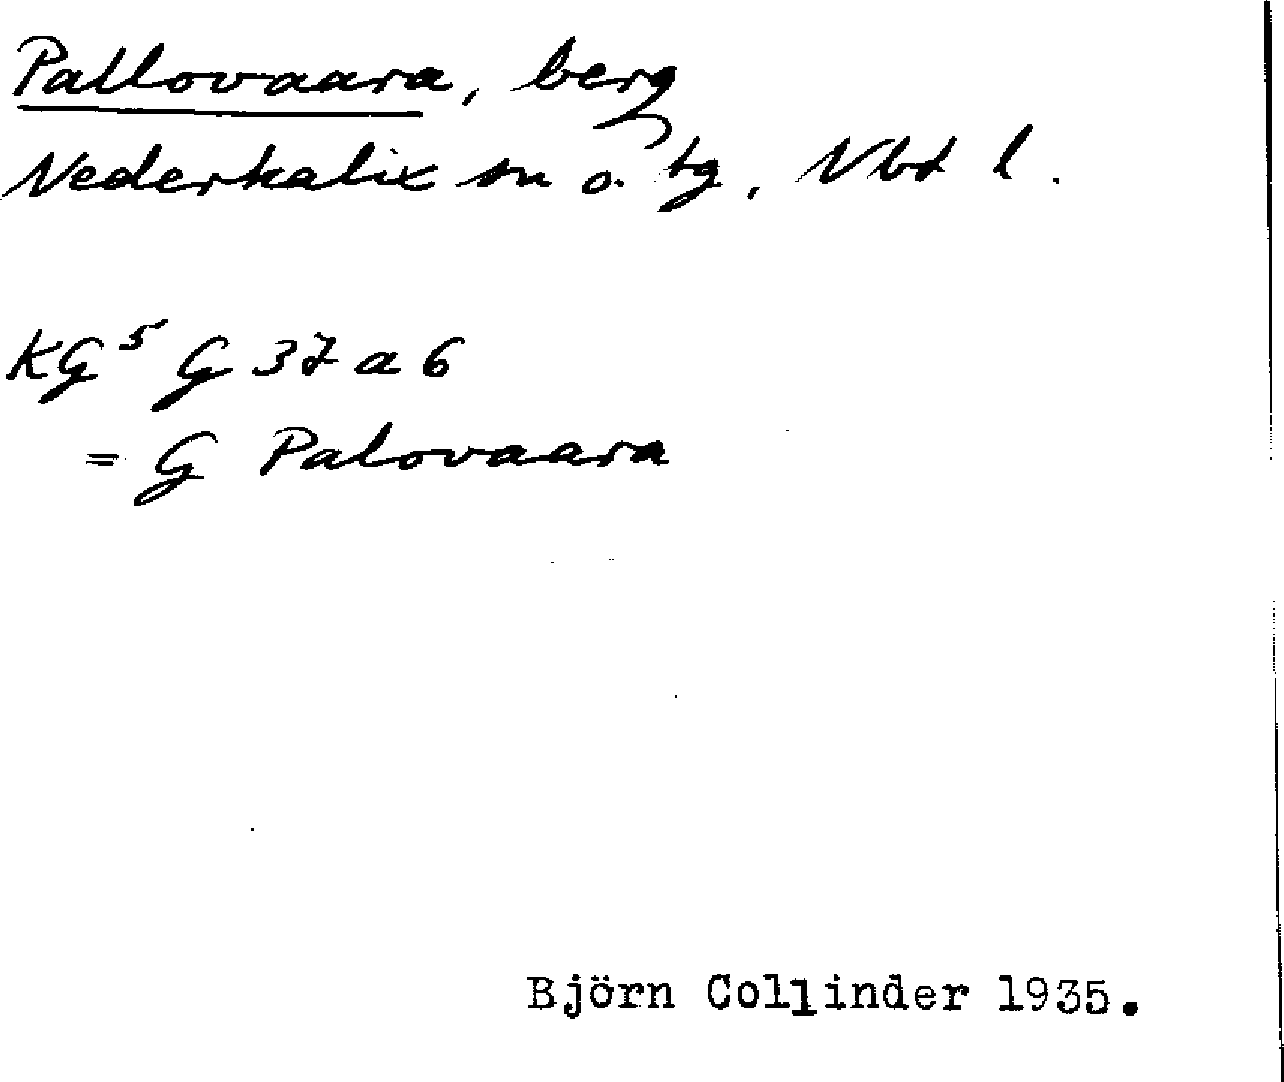 Pallovaara, berg
Nederkalix sn o. tg, Nbt l.
KG⁵ G 37 a 6
= G Palovaara
Björn Collinder 1935.